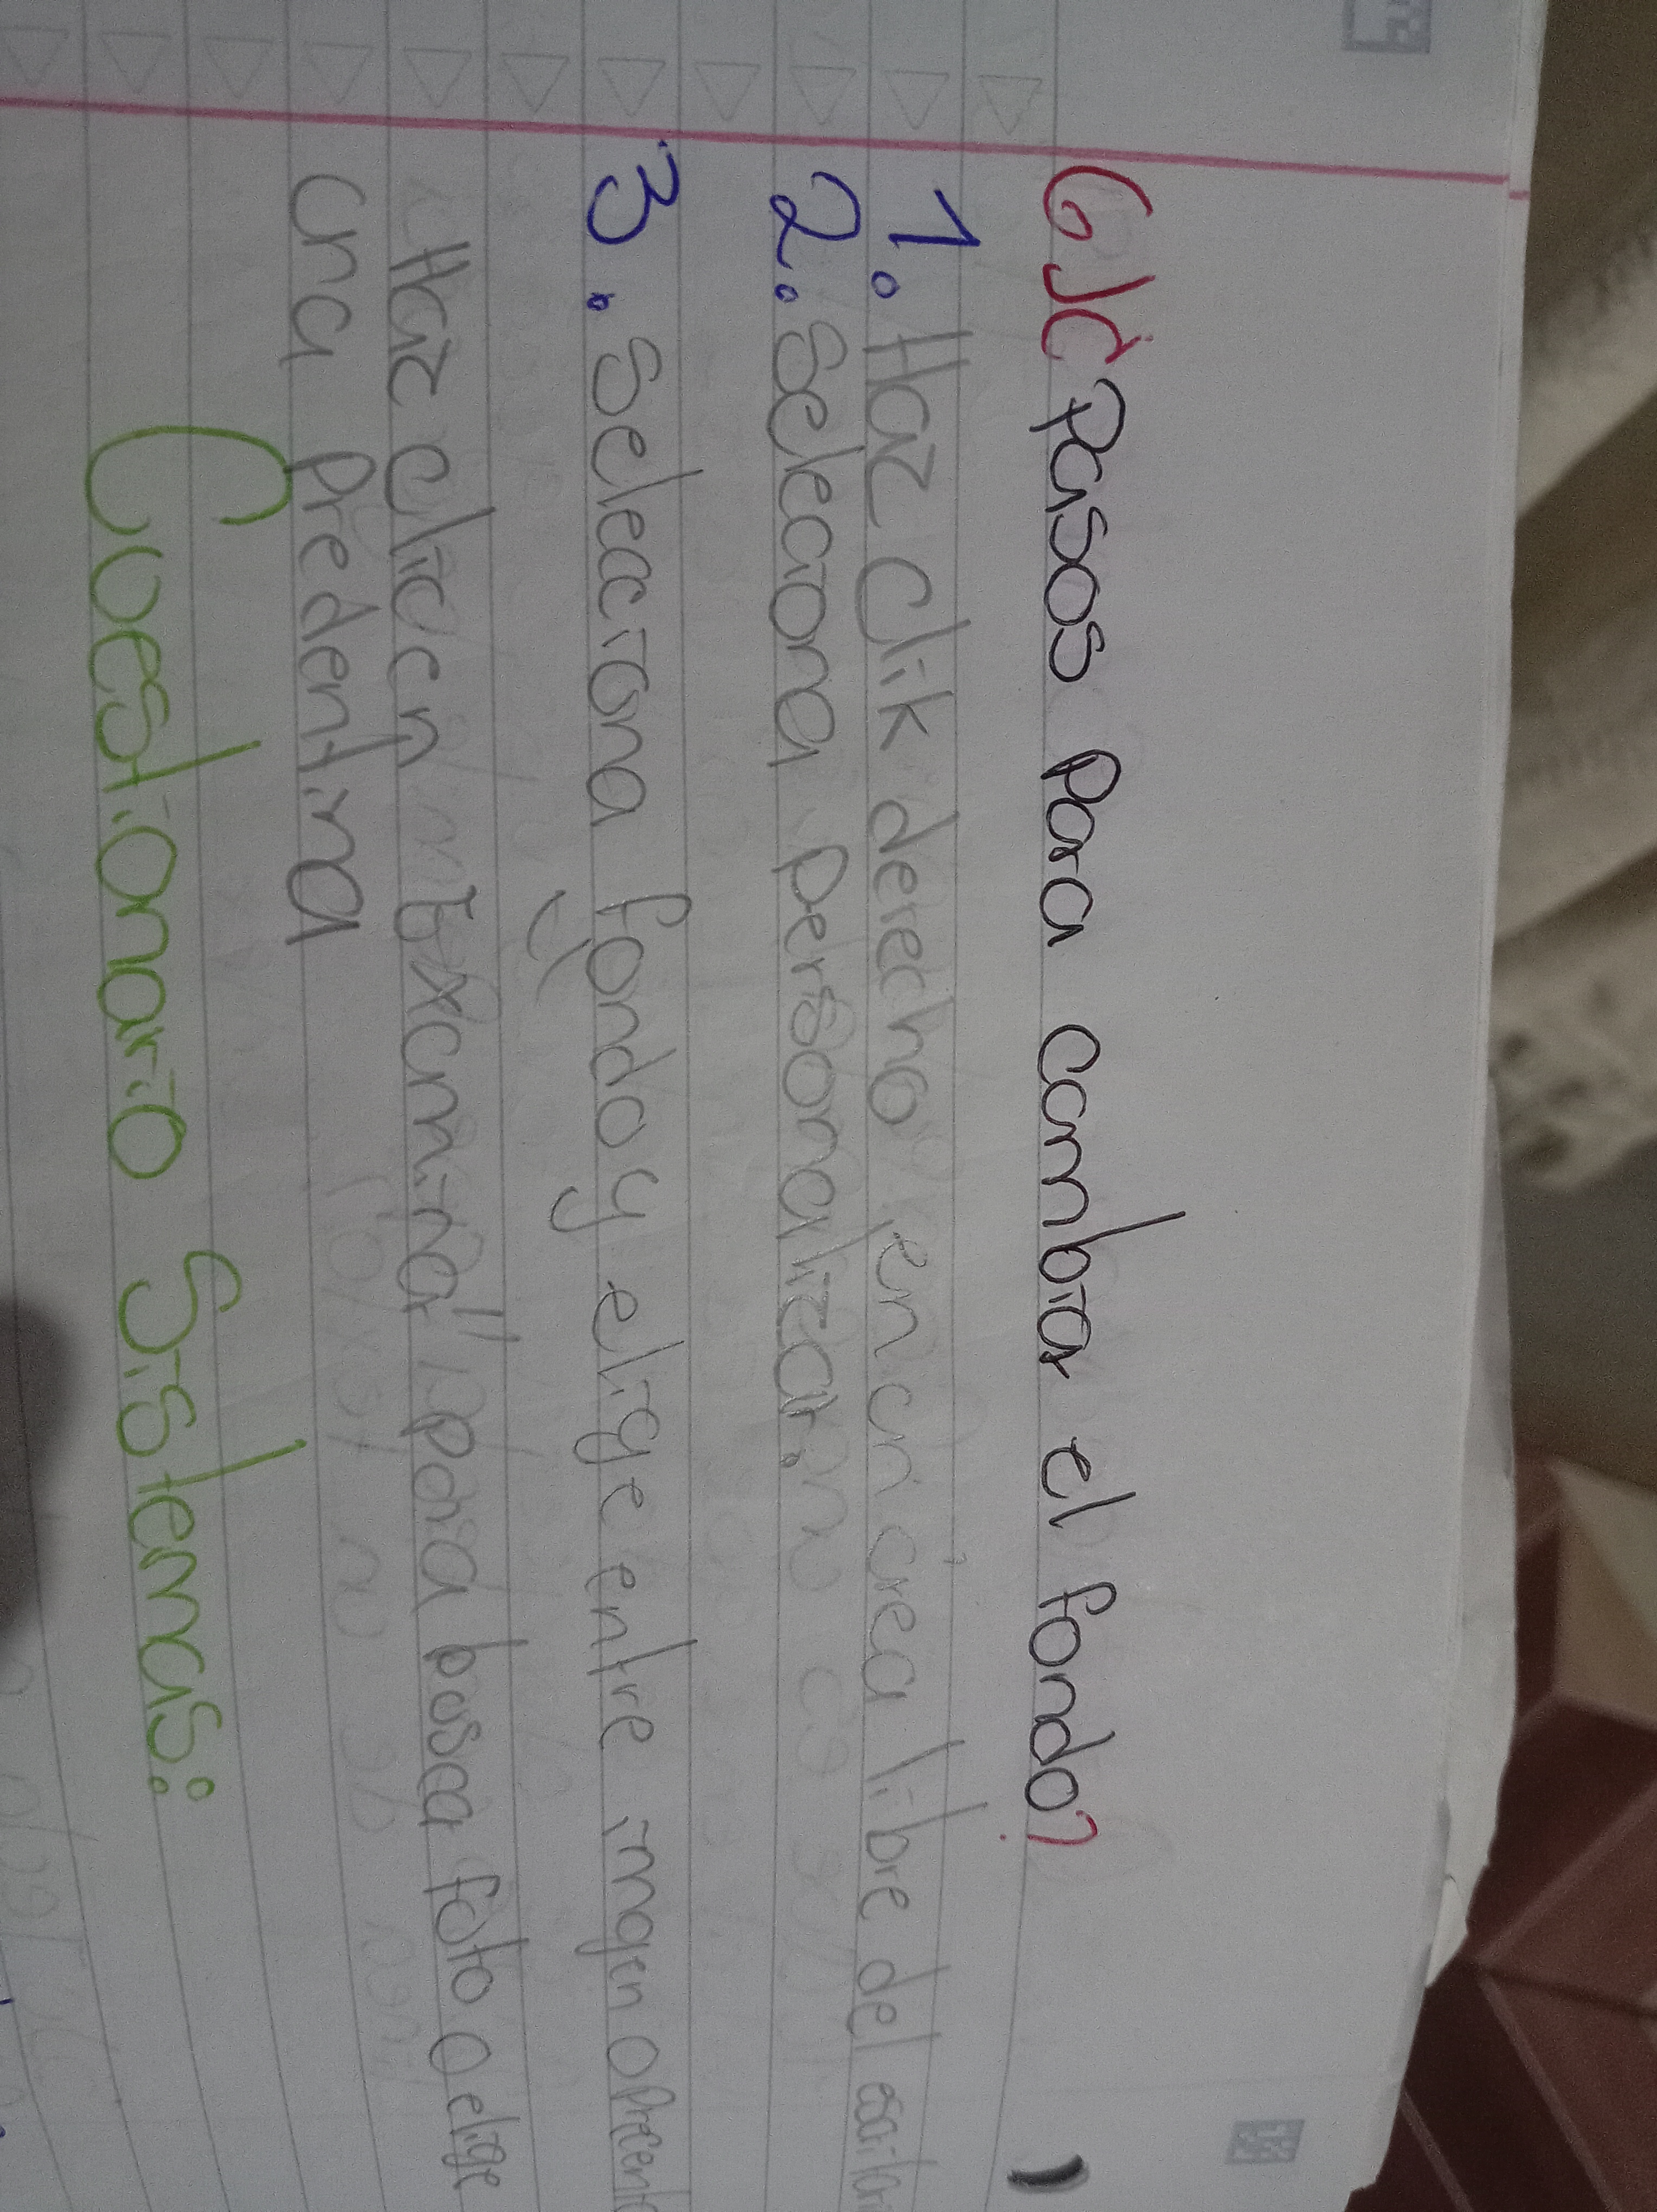 6)¿Pasos para cambiar el fondo?
1. Haz Clik derecho en un área libre del escritorio
2. Seleciona personalizar.
3. selecciona fondo y elige entre imagen o precente
Haz clic en "Examinar" para buscar foto o elige
una predentina
Cuestionario Sistemas: